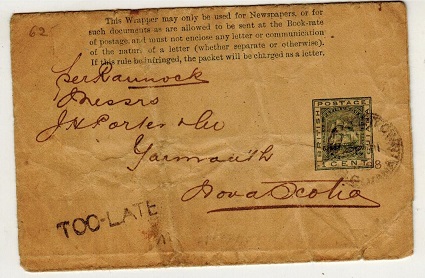 62
This Wrapper may only be used for Newspapers, or for
such documents as are allowed to be sent at the Book-rate
of postage, and must not enclose any letter or communication
of the nature of a letter (whether separate or otherwise).
If this rule be infringed, the packet will be charged as a letter.
per Rannock
Messrs
J. H. Porter & Co
Yarmouth
Nova Scotia
BRITISH
POSTAGE
CENT
TOO-LATE